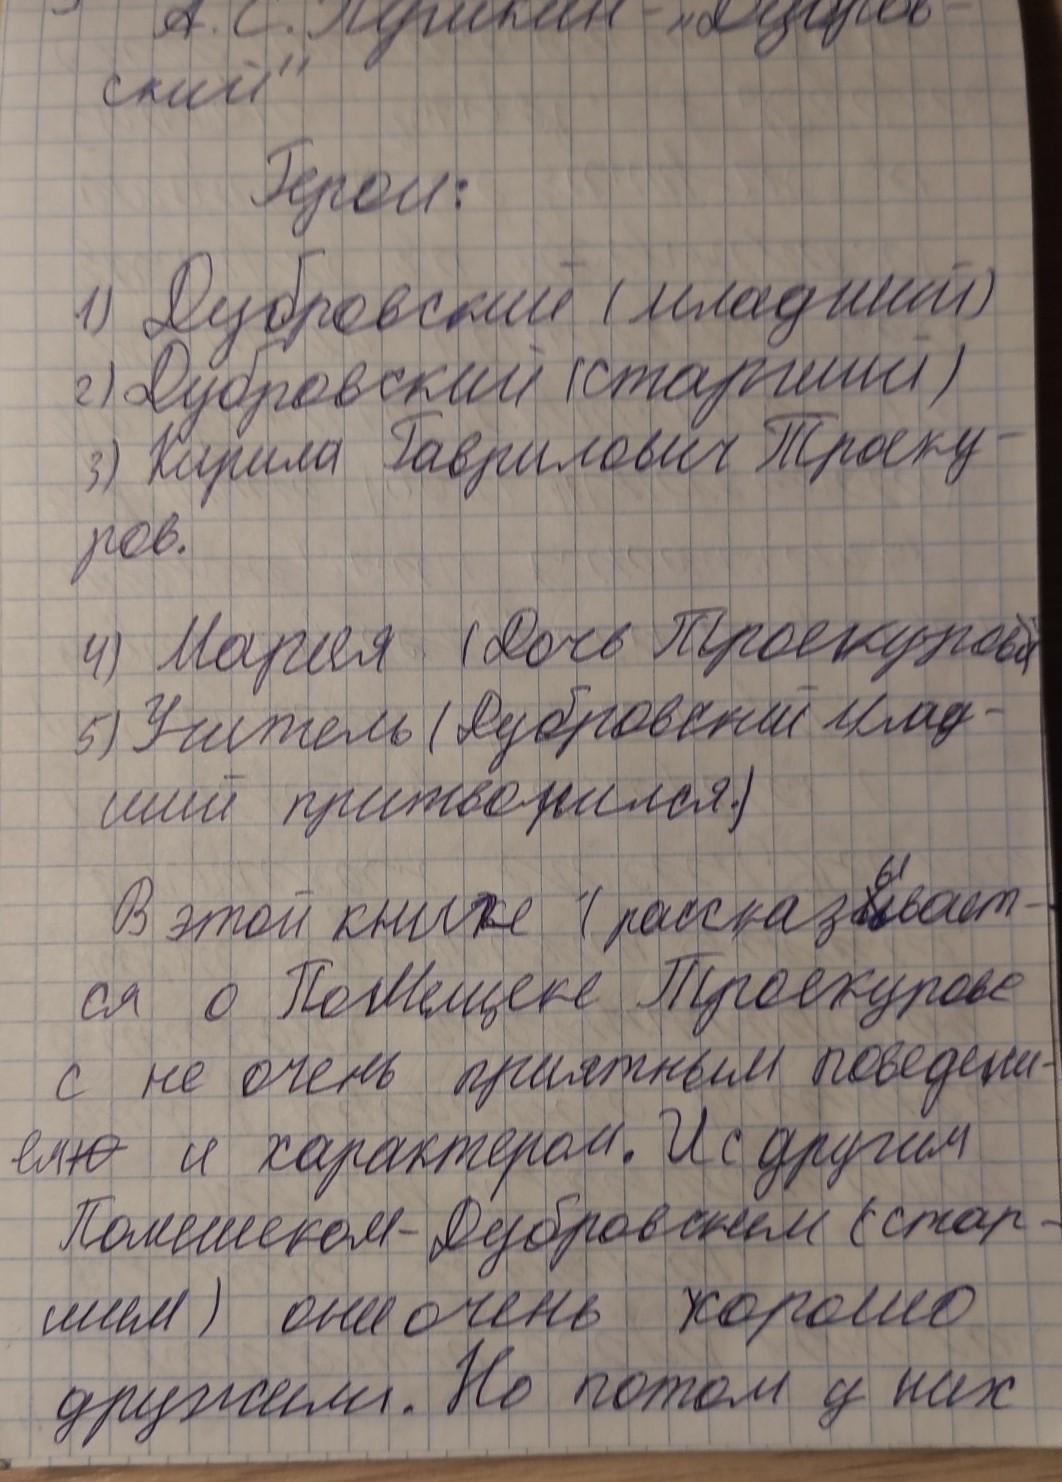 А. С. Пушкин - „Дубров-
ский"
Герои:
1) Дубровский (младший)
2) Дубровский (старший)
3) Кирила Гаврилович Троеку-
ров.
4) Мария (Дочь Троекурова
5) Учитель (Дубровский млад-
ший притворился.)
В этой книжке рассказывает-
ся о Помещеке Троекурове
с не очень приятным поведени-
ем и характером. И с другим
Помешеком - Дубровским (стар-
шим) они очень хорошо
дружили. Но потом у них